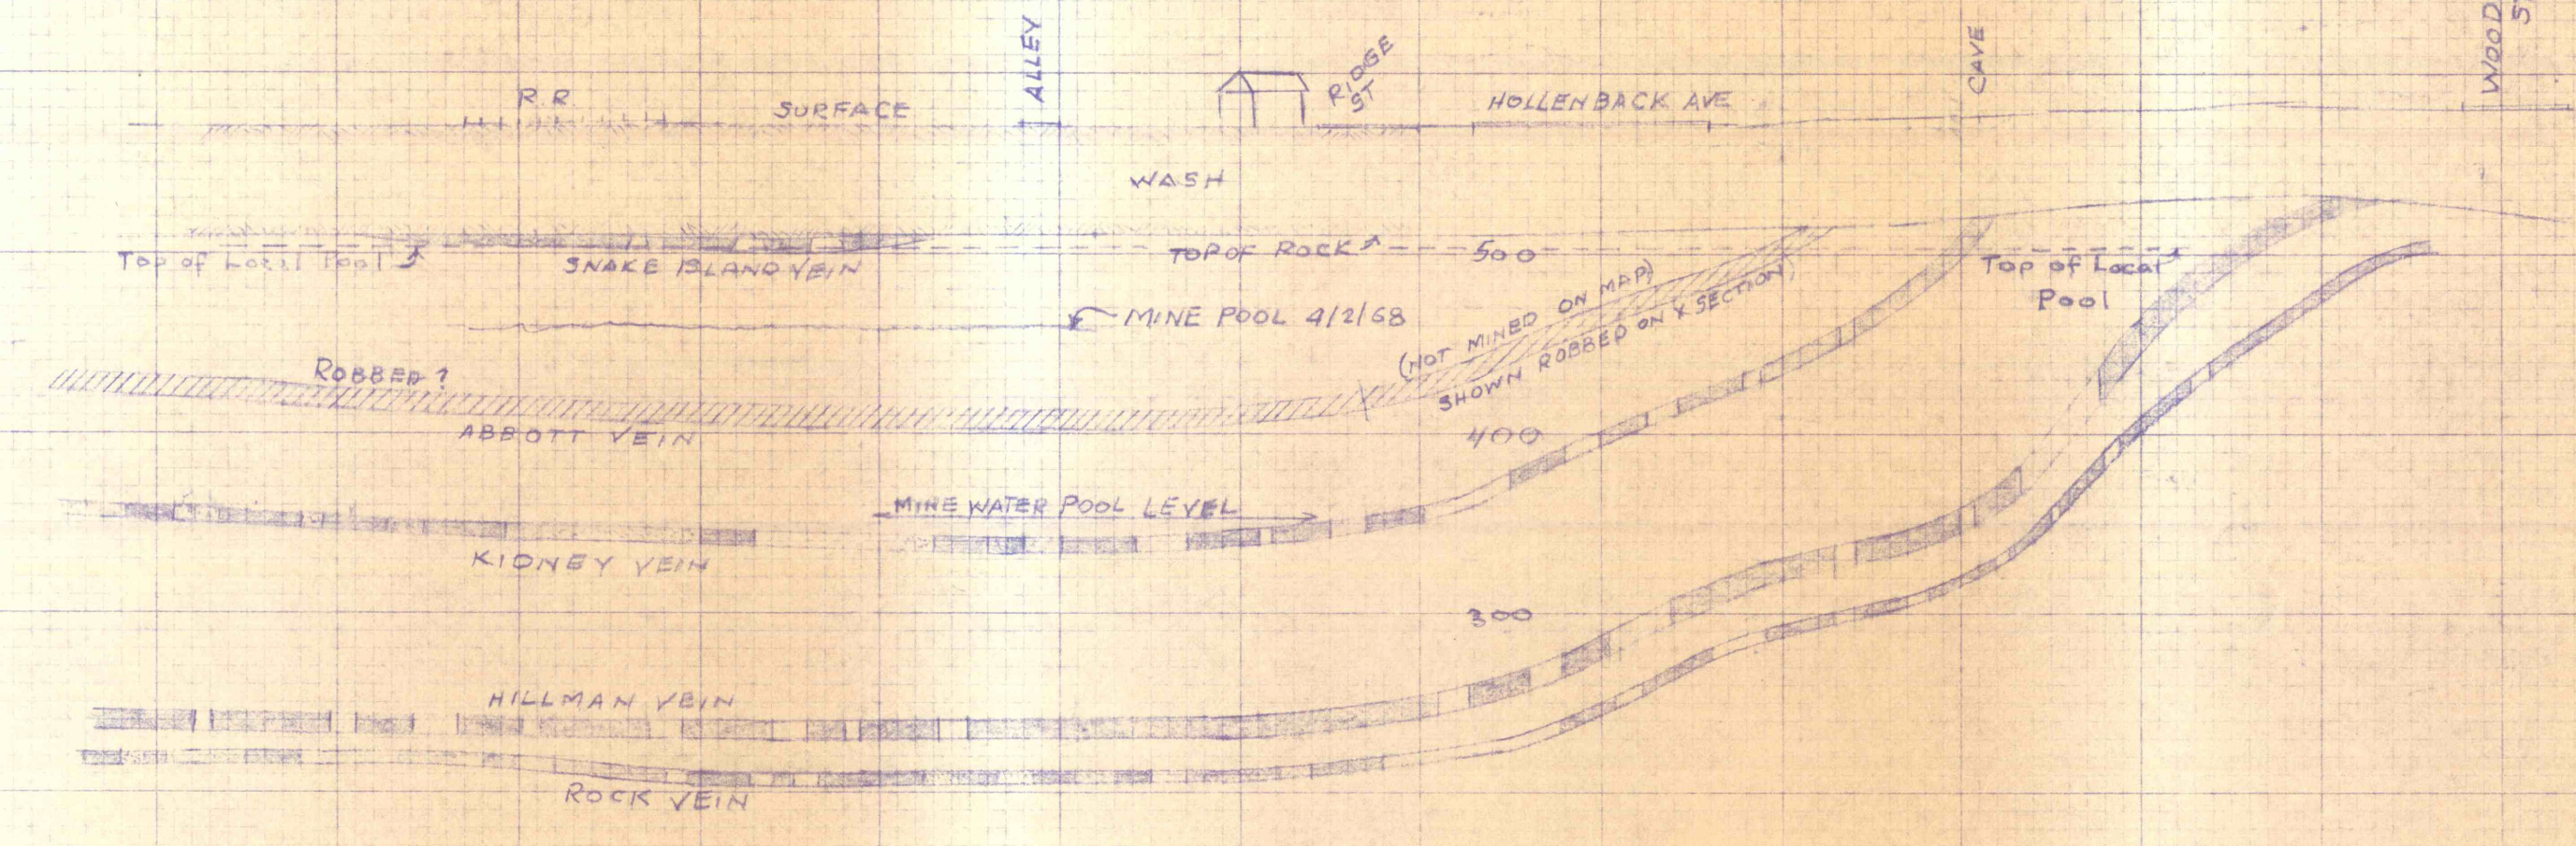 ALLEY
CAVE
WOOD
ST
R.R.
SURFACE
RIDGE
ST
HOLLENBACK AVE
WASH
Top of Local Pool
SNAKE ISLAND VEIN
TOP OF ROCK
500
Top of Local
Pool
MINE POOL 4/2/68
(NOT MINED ON MAP)
SHOWN ROBBED ON X SECTION)
ROBBED?
ABBOTT VEIN
400
MINE WATER POOL LEVEL
KIDNEY VEIN
300
HILLMAN VEIN
ROCK VEIN